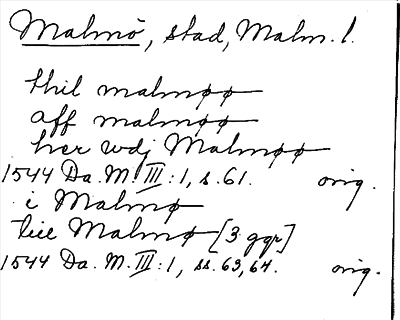 Malmö, stad, Malm. l.
thil malmøø
aff malmøø
her wdj Malmøø
1544 Da. M. III: 1, s. 61. orig.
i Malmø
Malmø [3 ggr]
1544 Da. M. III: 1, ss. 63, 64. orig.